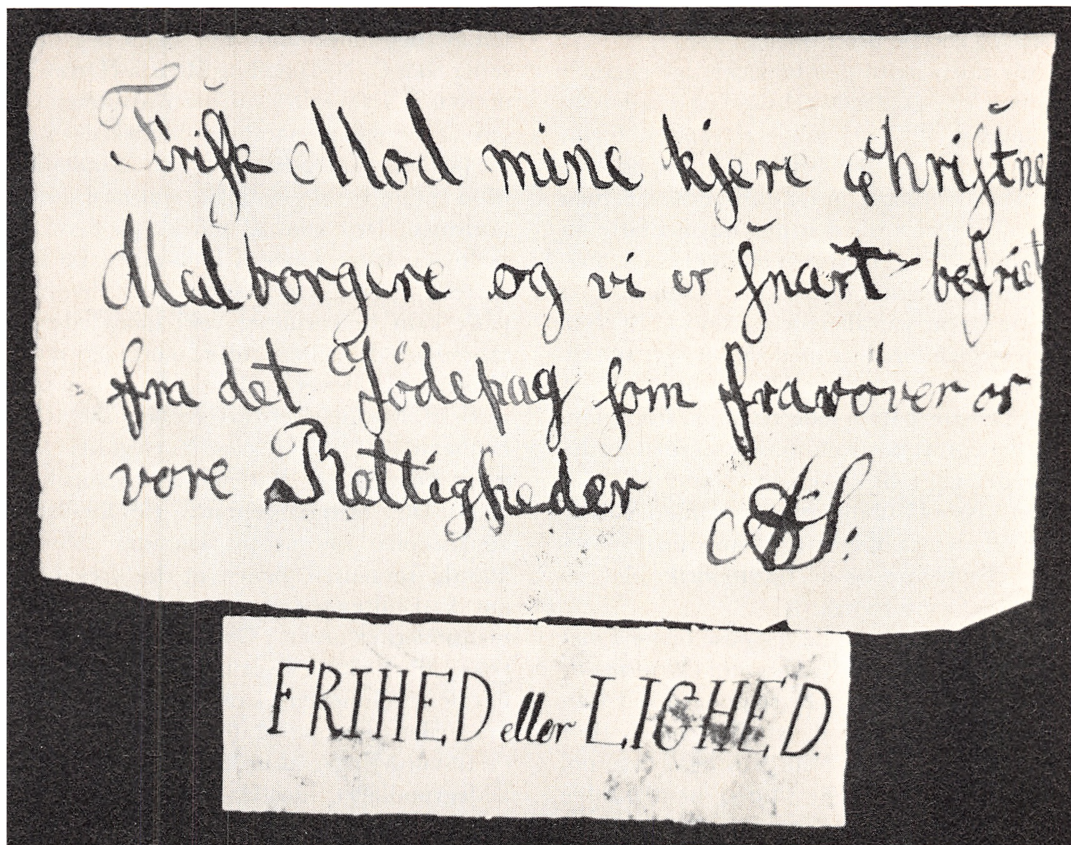 Frisk Mod mine kjere Christne
Medborgere og vi er snart befriet
fra det Jödepag som fraröver os
vore Rettigheder
FRIHED eller LIGHED.